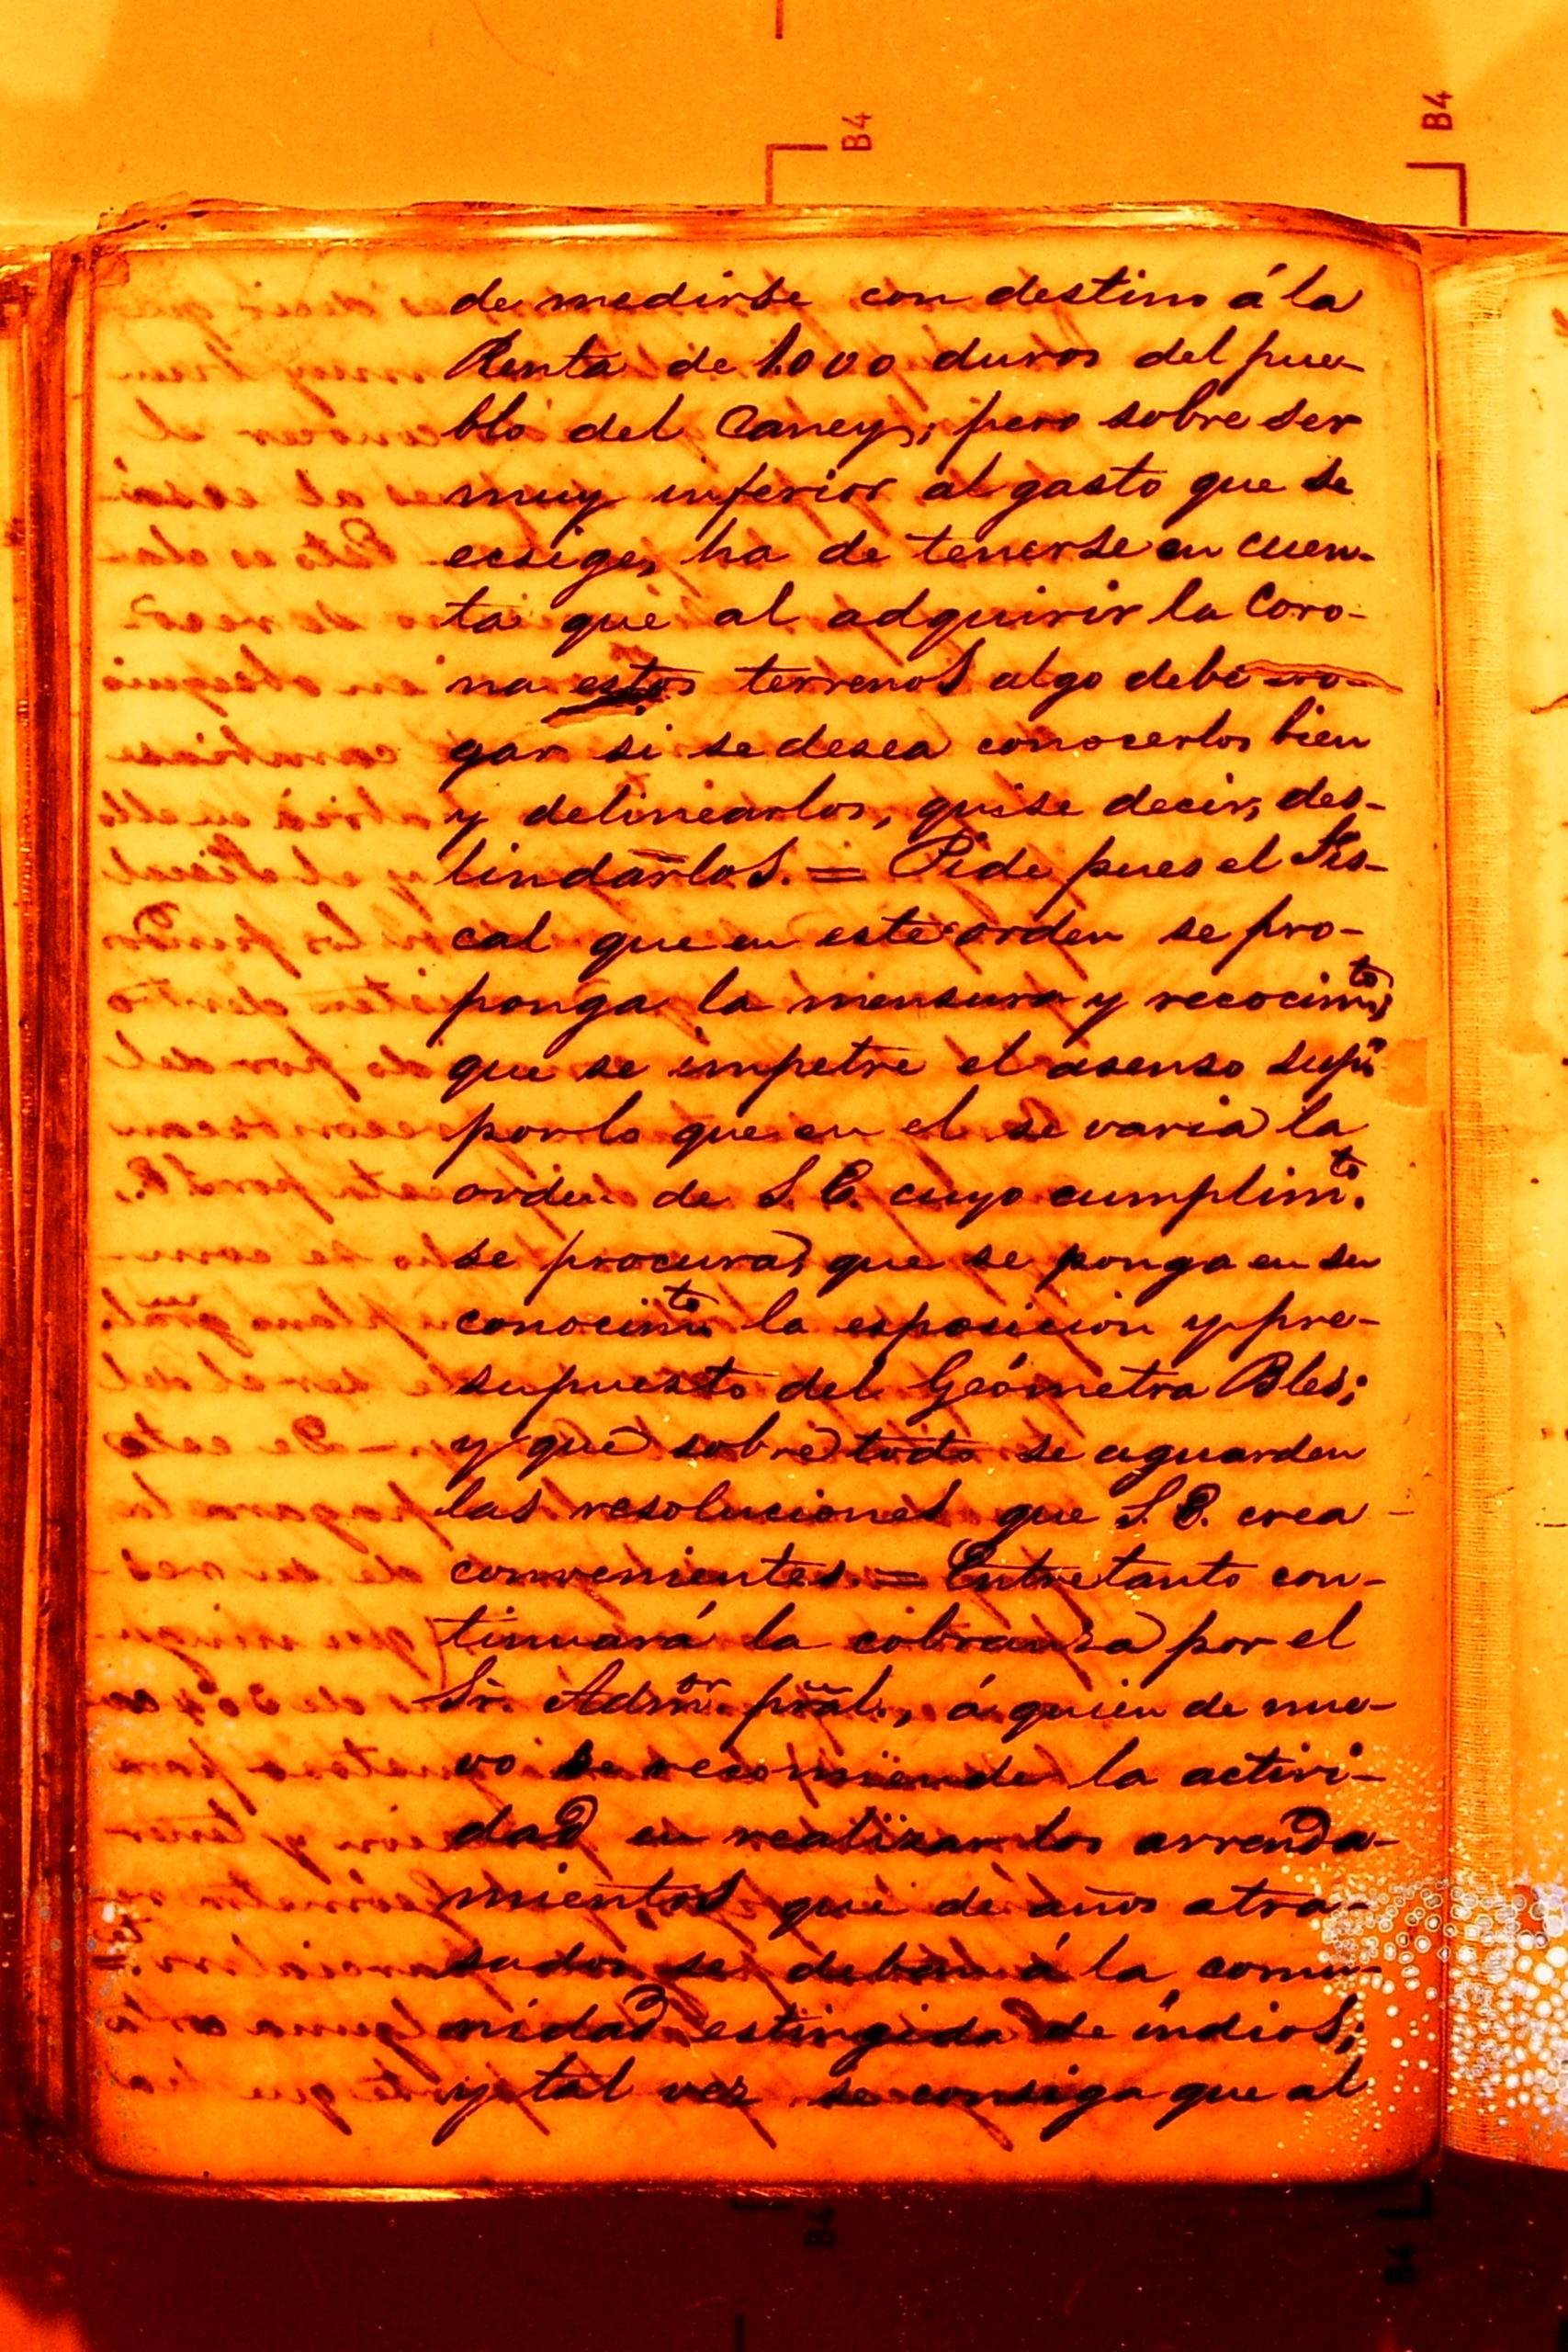 B4
B4
de medirse con destino á la
Renta de 1.000 duros del pue-
blo del Caney; pero sobre ser
muy inferior al gasto que se
ecsige, ha de tenerse en cuen-
ta que al adquirir la Coro-
na estos terrenos algo debe ero-
gar si se desea conocerlos bien
y delinearlos, quise decir, des-
lindarlos. = Pide pues el Fis-
cal que en este orden se pro-
ponga la mensura y recocimto;
que se impetre el asenso supr
por lo que en el se varia la
orden de S. E. cuyo cumplimto.
se procura; que se ponga en su
conocimto la esposicion y pre-
supuesto del Geómetra Bles;
y que sobre todo se aguarden
las resoluciones que S. E. crea
convenientes. = Entretanto con-
tinuará la cobranza por el
Sr. Admor. pral., á quien de nue-
vo se recomiende la activi-
dad en realizar los arrenda-
mientos que de años atra-
sados se deben á la comu-
nidad estingida de índios;
y tal vez se consiga que al
B4
B4